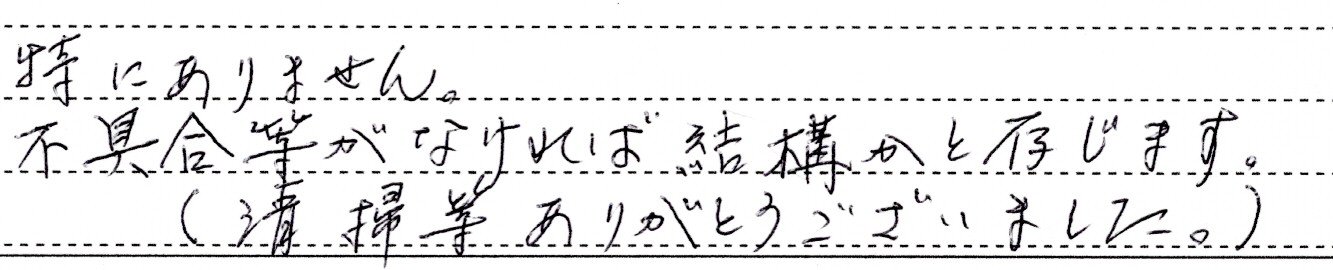 特にありません。
不具合等がなければ結構かと存じます。
(清掃等ありがとうございました。)